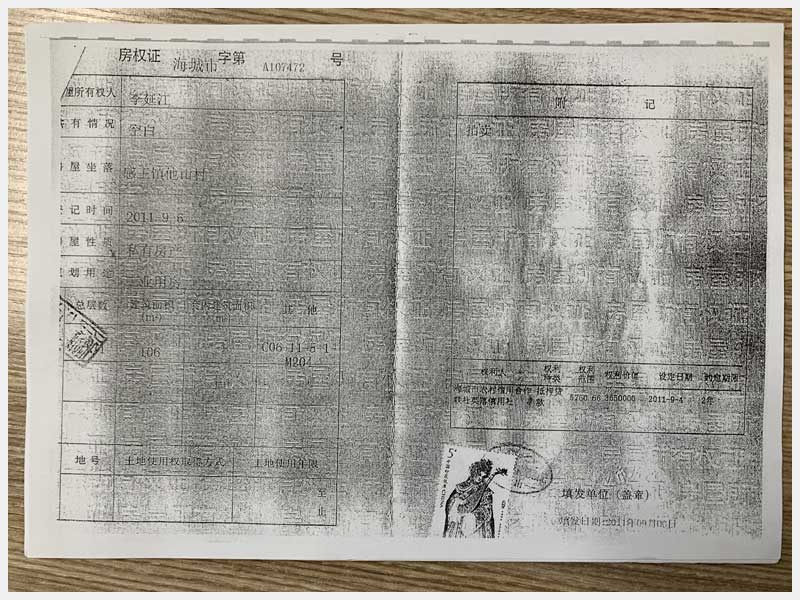 房权证 海城市 字第 A107472 号
屋所有权人 李延江
共有情况
房屋坐落 感王镇他山村
登记时间 2011.9.6
房屋性质 私有房产
规划用途 工业用房
总层数 建筑面积 (m²) 套内建筑面积 (m²) 其 他
106 C06-11-5-1
M204
地 号 土地使用权取得方式 土地使用年限
至
止
附 记
拍卖
权利人 权利种类 权利范围 权利价值 设定日期 约定期限
海城市农村信用合作 抵押贷
联社英落信用社 款 5760.66 3650000 2011-9-4 2年
填发单位（盖章）
填发日期:2011年09月06日